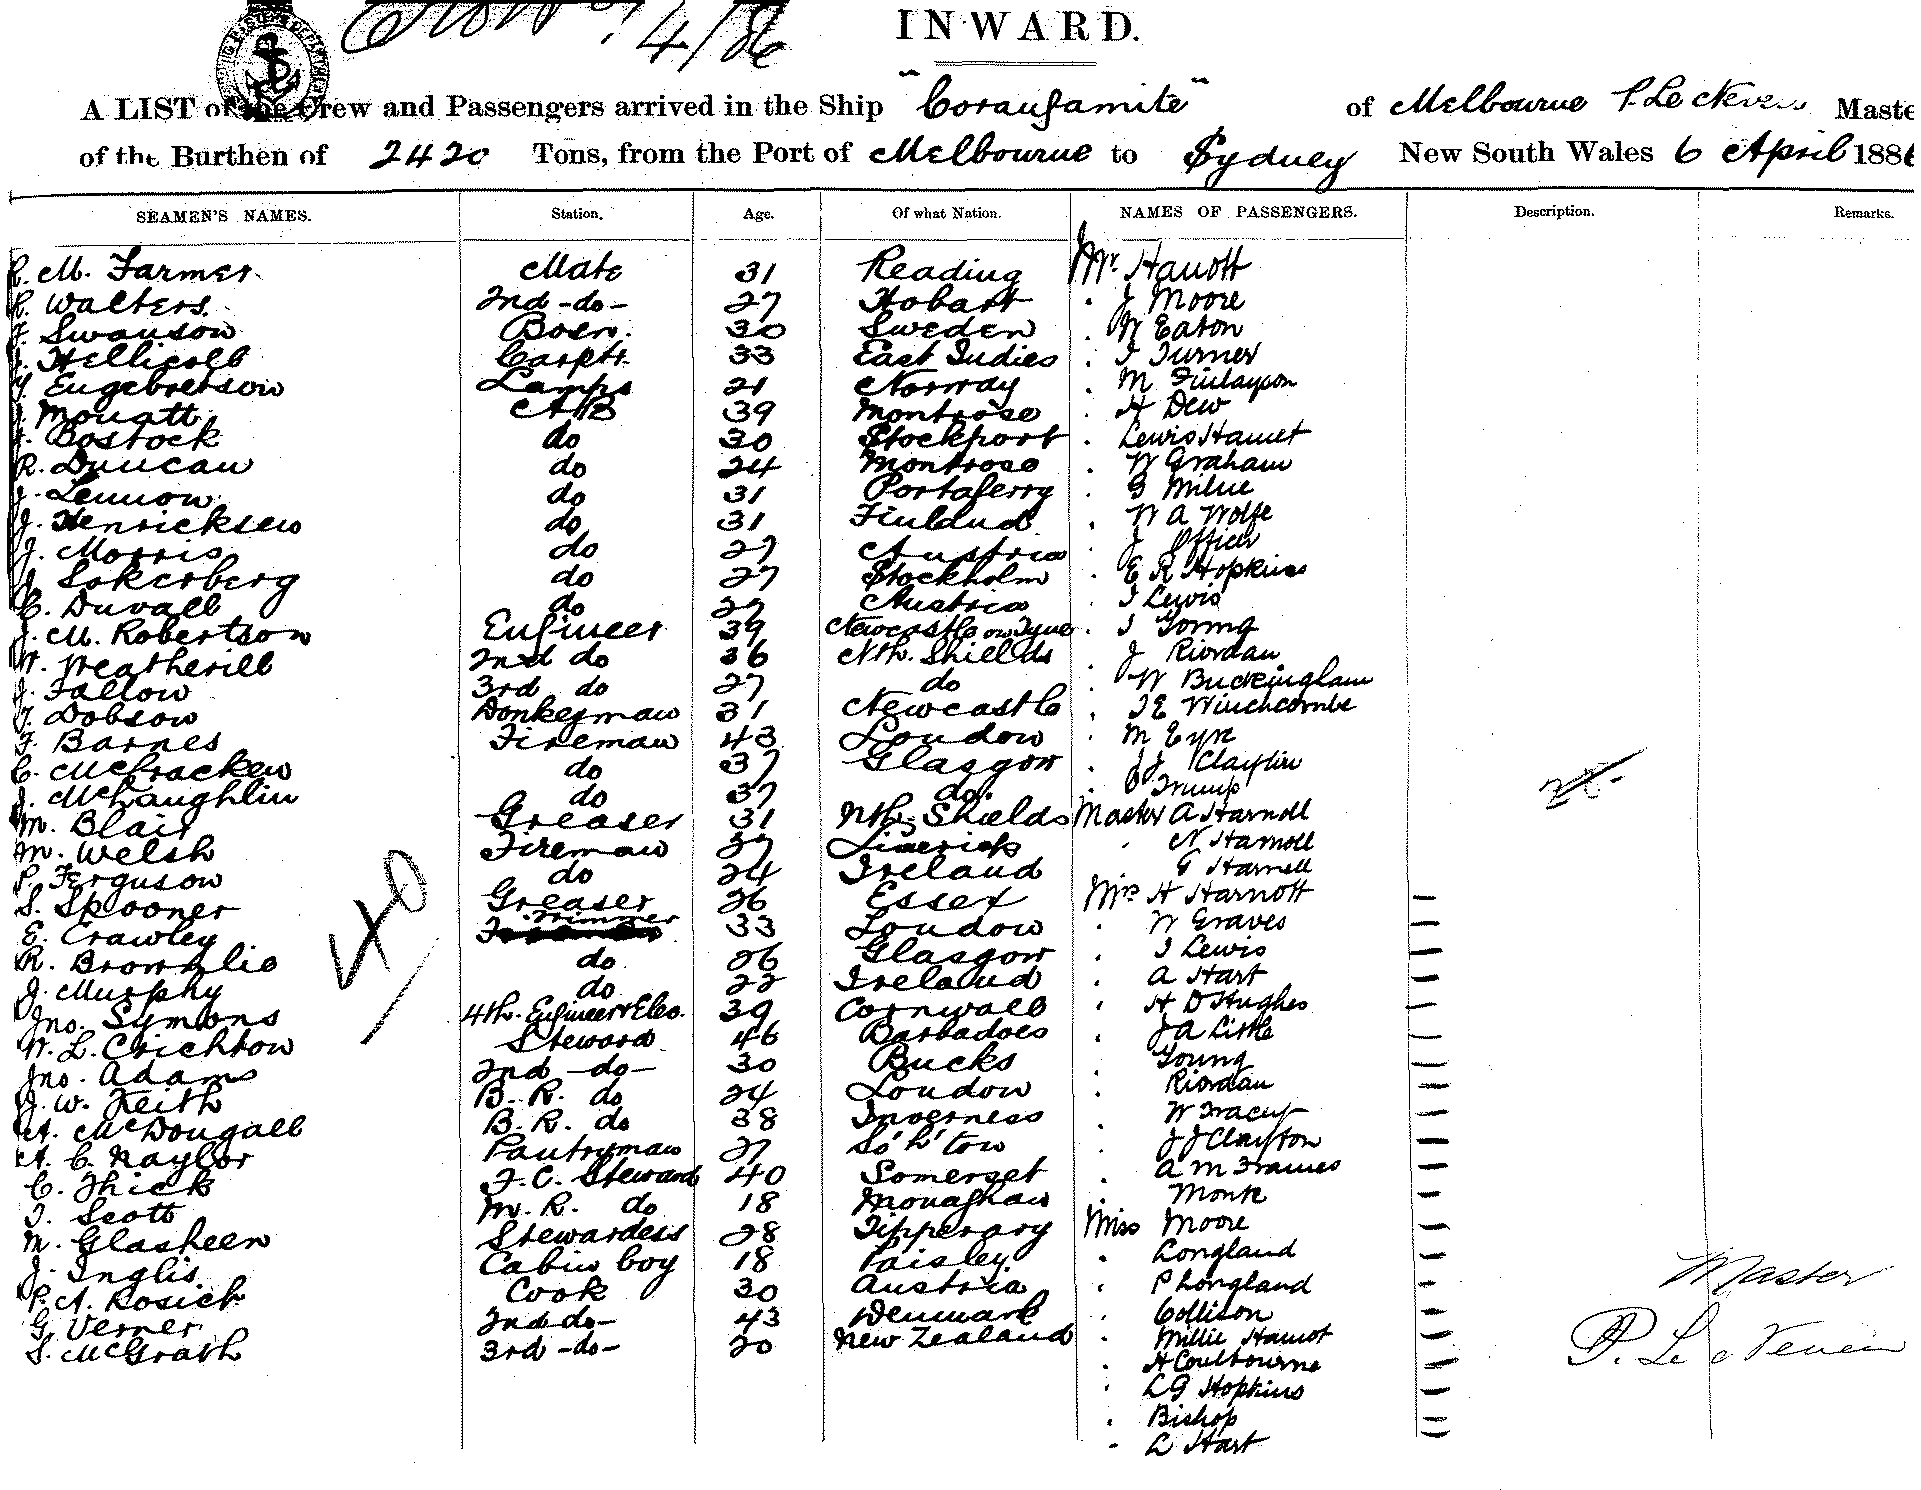 4/86
INWARD.
A LIST of the Crew and Passengers arrived in the Ship "Corangamite" of Melbourne P. Le Neven Maste
of the Burthen of 2420 Tons, from the Port of Melbourne to Sydney New South Wales 6 April 1886
SEAMEN'S NAMES. Station. Age. Of what Nation. NAMES OF PASSENGERS. Description. Remarks.
R. M. Farmer Mate 31 Reading Mr. Harrott
R. Walters. 2nd -do- 27 Hobart . J Moore
F. Swanson Bosn. 30 Sweden . W Eaton
J. Hellicoll Carptr. 33 East Indies . T Turner
Engebretson Lamps 21 Norway . M Finlayson
J. Mouatt AB 39 Montrose . H Dew
J. Bostock do 30 Stockport . Lewis Hamet
R. Duncan do 24 Montrose . W Graham
J. Lennon do 31 Portaferry . G Milne
J. Henricksen do 31 Finland . W A Wolfe
J. Morris do 27 Austria . J Officer
J. Sakerberg do 27 Stockholm . E R Hopkins
C. Duvall do 27 Austria . I Lewis
J. M. Robertson Engineer 39 Newcastle on Tyne . I Young
W. Weatherill 2nd do 36 Nth. Shields . J Riordan
J. Fallow 3rd do 27 do . W Buckingham
T. Dobson Donkeyman 31 Newcastle . T E Winchcombe
F. Barnes Fireman 43 London . M Eyre
C. McCracken do 37 Glasgow . J J Clayton
J. McLaughlin do 37 do. Trump
M. Blair Greaser 31 Nth. Shields Master A Harnoll
M. Welsh Fireman 37 Limerick . N Harnoll
P. Ferguson do 24 Ireland G Harnell
S. Spooner Greaser 26 Essex Mrs H Harnott —
E. Crawley. Trimmer 33 London . W Graves —
R. Brownlie do 26 Glasgow . I Lewis —
J. Murphy do 22 Ireland . A Hart —
Jno. Symons 4th. Engineer & Elec. 39 Cornwall . H D Hughes —
W. L. Crichton Steward 46 Barbadoes . J A Little —
Jno. Adams 2nd -do- 30 Bucks . Young —
J. W. Keith B. R. do 24 London . Riordan —
A. McDougall B. R. do 38 Inverness . W Tracey —
A. C. Naylor Pantryman 27 So'h'ton . J J Clayton —
C. Thick F. C. Steward 40 Somerset . A M Frames —
T. Scott M. R. do 18 Monaghan . Monk —
M. Glasheen Stewardess 28 Tipperary Miss Moore —
J. Inglis. Cabin boy 18 Paisley . Longland —
P. A. Rosich Cook 30 Austria . P Longland —
G. Verner 2nd do- 43 Denmark . Collison —
S. McGrath 3rd -do- 20 New Zealand . Millie Hamot —
. H Coulbourne —
. L G Hopkins —
. Bishop —
. L Hart —
Master
P. Le Neven